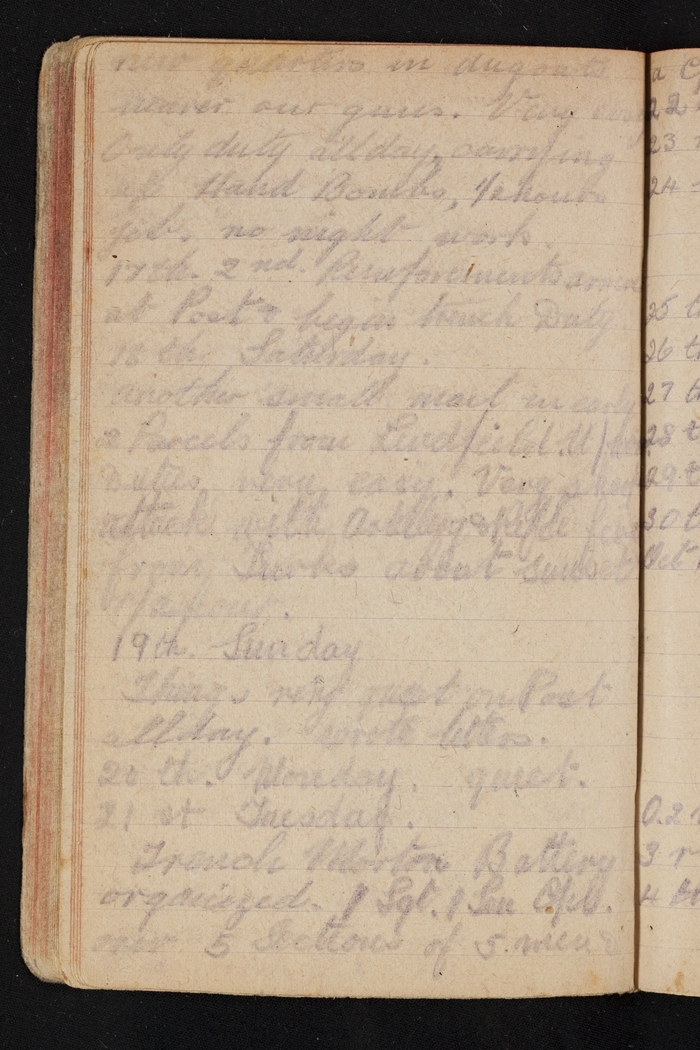 new quarters in dugouts
nearer our guns. Very easy
Only duty all day, carrying
up Hand Bombs, 1/2 hours
job, no night work.
17th. 2nd. Reinforcements arrive
at Post & begin trench Duty.
18th. Saturday.
another small mail in early
2 Parcels from Lindfeild.
Duties very easy. Very
attack with Artillery & Rifle
from Turks about sunset
19th. Sunday
Things very quiet on Post
all day. wrote letters.
20th. Monday. quiet.
21st Tuesday.
Trench Morton Battery
organised. 1 Sgt. 1 Cpl.
over 5 Sections of 5 men
a
22
23
24
25 t
26 t
27 t
28 t
29 t
30 t
Oct
0.2
3 r
4